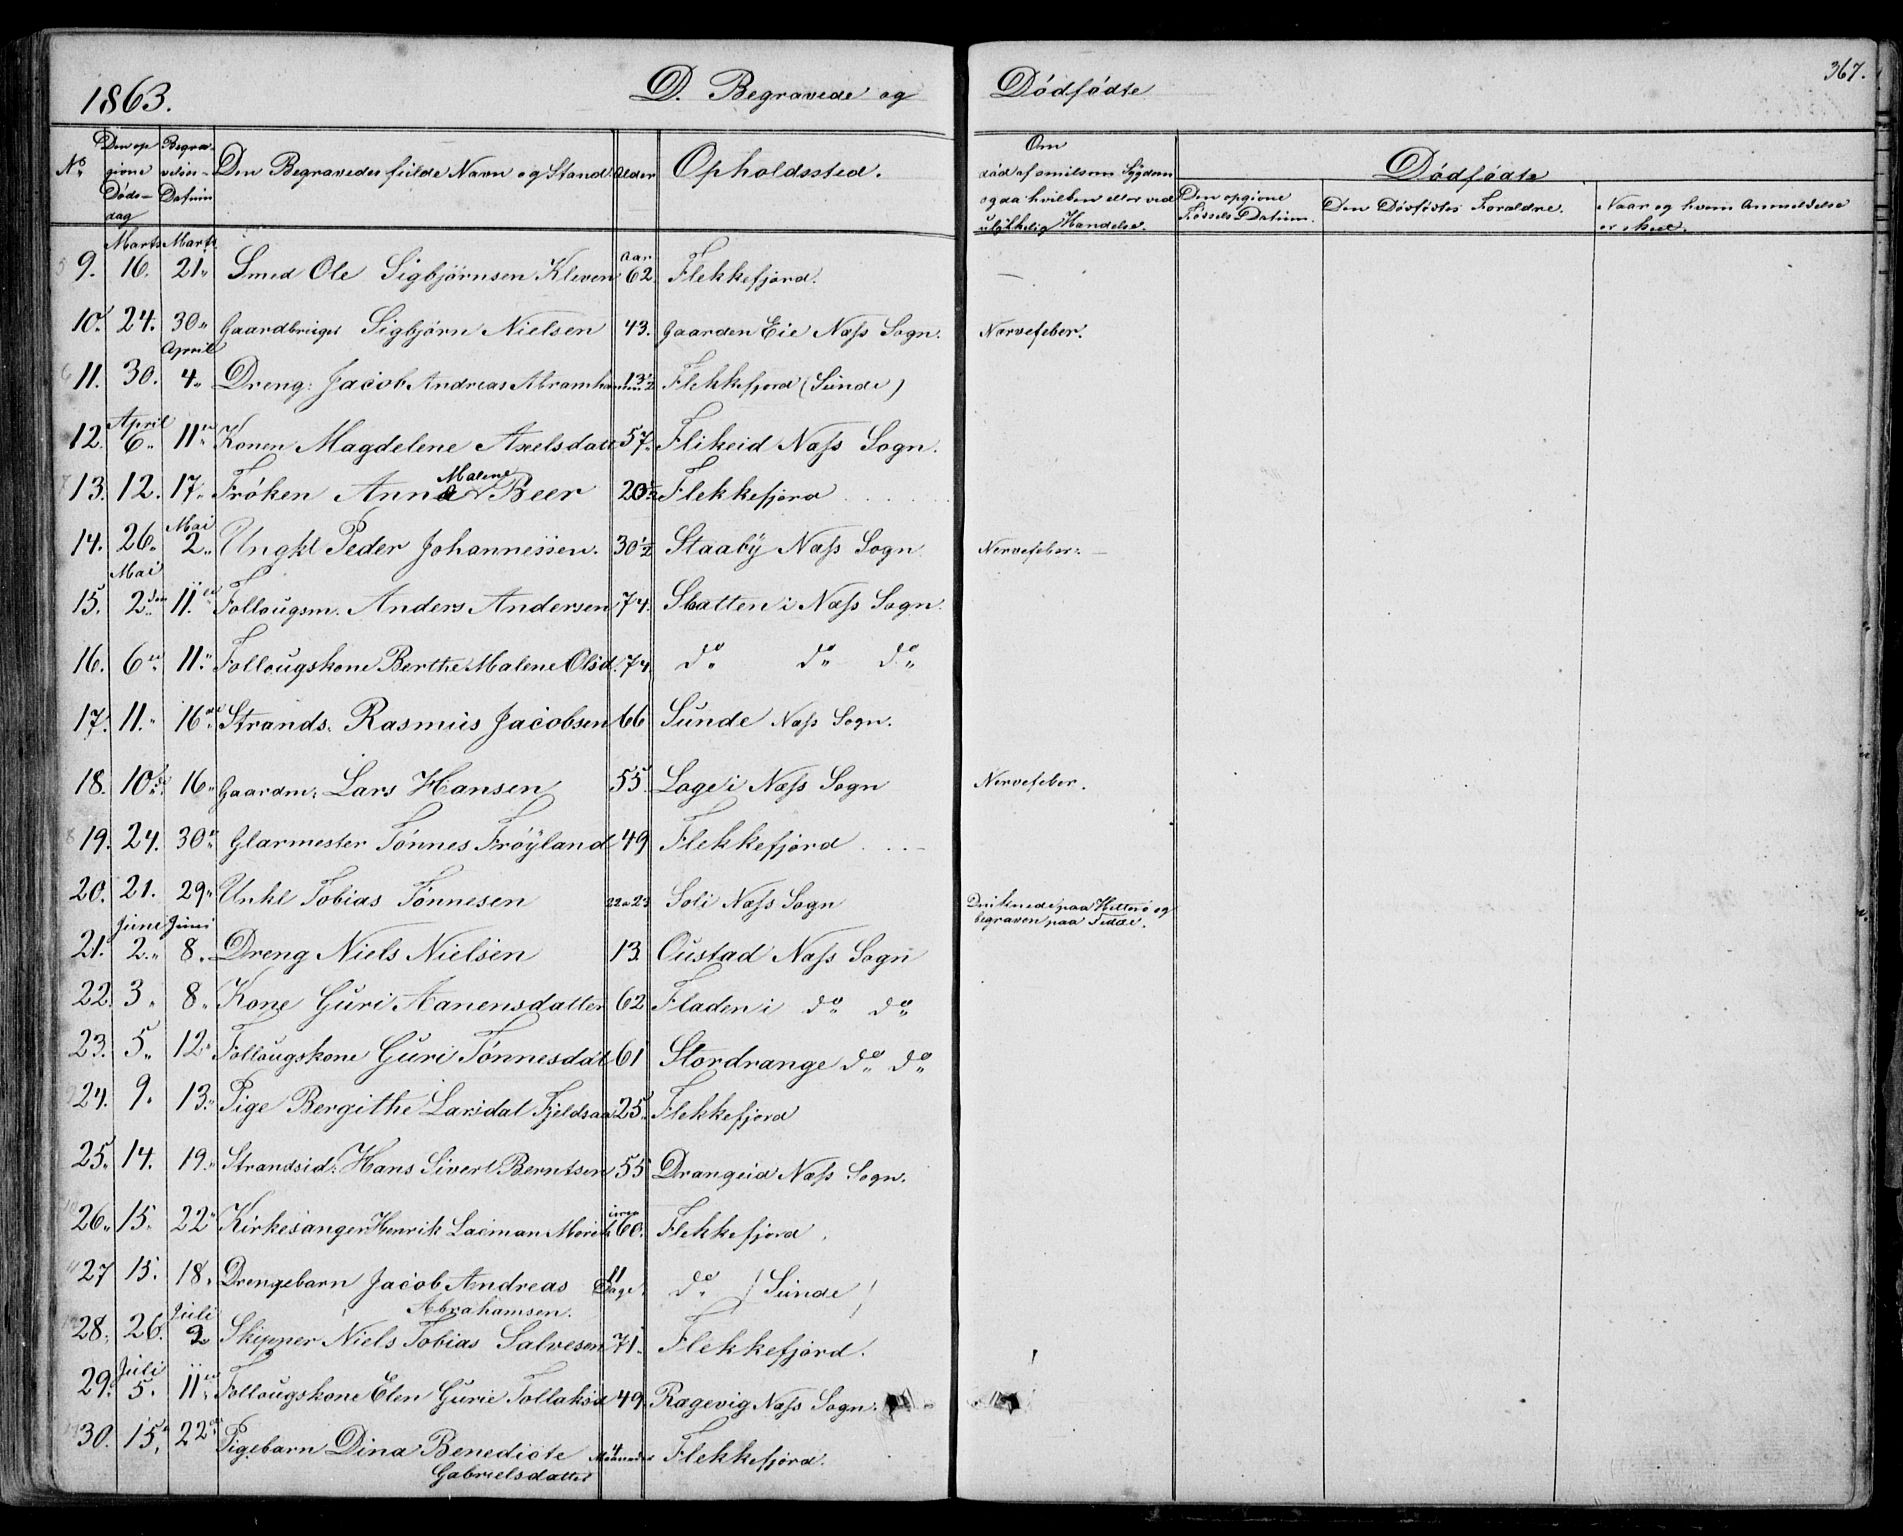 1863.
D. Begravede og Dödfödte
367.
No. Den opgivne Döds-dag Begravelses-Datum Den Begravedes fulde Navn og Stand Alder Opholdssted. Om död af smitsom Sygdom og da hvilken eller ved ulÿkkelig Hændelse. Dödfödte
Den opgivne Fössels Datum. Den Dödfödtes Forældre. Naar og hvem Anmeldelse er skeet.
Marts Marts Aar
9. 16. 21. Smed Ole Sigbjörnsen Kleven 62 Flekkefjord.
10. 24. 30. Gaardbruger Sigbjörn Nielsen 43. Gaarden Eie Næss Sogn. Nervefeber.
April
11. 30. 4. Dreng: Jacob Andreas Abramhamsen 13½ Flekkefjord (Sunde)
April
12. 6. 11. Konen Magdelene Axelsdatt 57. Flikeid Næss Sogn.
13. 12. 17. Fröken Anna Malene Beer 20½ Flekkefjord
Mai
14. 26. 2. Ungkl Peder Johannessen. 30½ Staabÿ Næss Sogn Nervefeber.
Mai
15. 2den 11. Follougsm. Anders Andersen 74. Skatten i Næss Sogn.
16. 6. 11. Follougskone Berthe Malene Olsd. 74 do do do
17. 11. 16. Strands. Rasmus Jacobsen 66 Sunde Næss Sogn.
18. 10. 16. Gaardm: Lars Hansen 55. Loge i Næss Sogn Nervefeber.
19. 24. 30. Glarmester Tönnes Fröÿland 49 Flekkefjord
20. 21. 29. Unkl Tobias Tönnesen 22 a 23 Soli Næss Sogn Druknede paa Hitterö og begraven paa Fedde.
June Juni
21. 2. 8. Dreng Niels Nielsen 13. Oustad Næss Sogn
22. 3. 8. Kone Guri Aanensdatter 62 Fladen i do do
23. 5. 12. Follougskone Guri Tönnesdat 61 Stordrange do do
24. 9. 13. Pige Bergithe Larsdat Fjeldsaa 25. Flekkefjord
25. 14. 19. Strandsid: Hans Sivert Berntsen 55 Drangeid Næss Sogn.
26. 15. 22 Kirkesanger Henrik Laiman 60. Flekkefjord
27 15. 18. Drengebarn Jacob Andreas Abrahamsen. 11 Dage do (Sunde)
Juli
28. 26. 2 Skipper Niels Tobias Salvesen 71. Flekkefjord.
Juli
29. 5. 11 Follougskone Elen Gurie Tollaksd 49 Ragevig Næss Sogn.
30. 15. 22 Pigebarn Dina Benedicte Gabrielsdatter 4 Maaneder Flekkefjord.